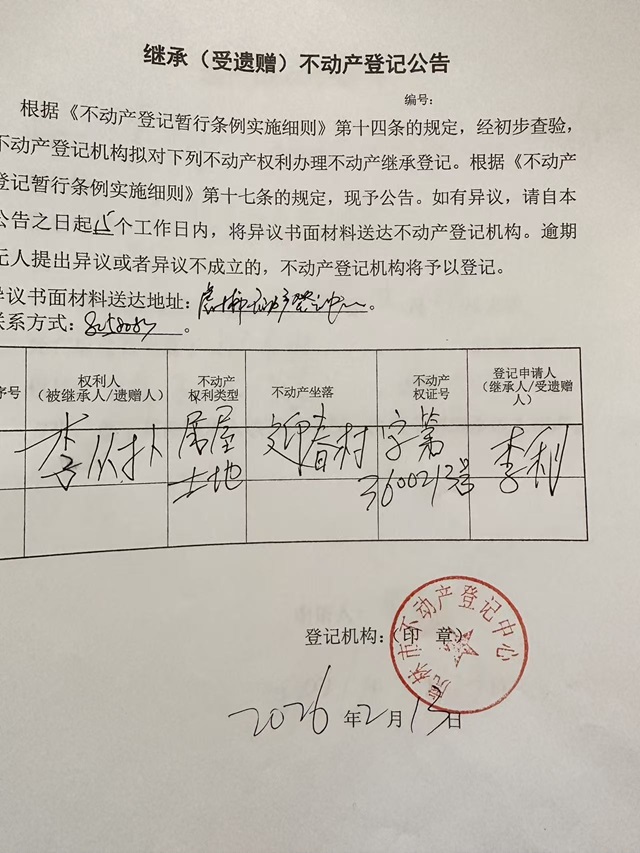 继承（受遗赠）不动产登记公告
编号：
根据《不动产登记暂行条例实施细则》第十四条的规定，经初步查验，
不动产登记机构拟对下列不动产权利办理不动产继承登记。根据《不动产
登记暂行条例实施细则》第十七条的规定，现予公告。如有异议，请自本
公告之日起15个工作日内，将异议书面材料送达不动产登记机构。逾期
无人提出异议或者异议不成立的，不动产登记机构将予以登记。
异议书面材料送达地址：虎林不动产登记中心。
联系方式：。
序号 权利人（被继承人/遗赠人） 不动产权利类型 不动产坐落 不动产权证号 登记申请人（继承人/受遗赠人）
李从扑 房屋土地 迎春村 字第3600213号 李利
登记机构：（印 章）
虎林市不动产登记中心
2026年2月13日